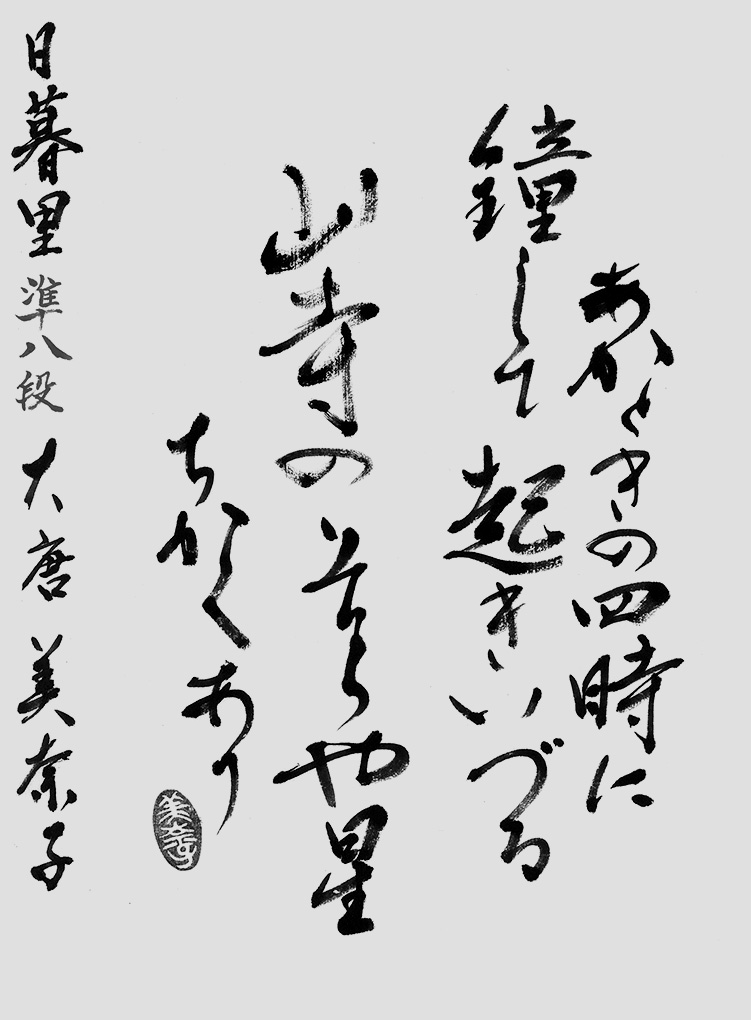 あかときの四時に
鐘して起きいづる
山寺のそらや星
ちかくあり
美奈子
日暮里 準八段 大唐 美奈子